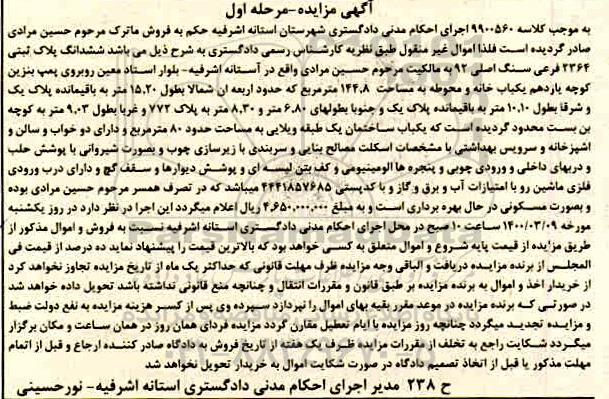 آگهی مزایده-مرحله اول
به موجب کلاسه ۹۹۰۰۵۶۰ اجرای احکام مدنی دادگستری شهرستان استانه اشرفیه حکم به فروش ماترک مرحوم حسین مرادی
صادر گردیده است فلذا اموال غیر منقول طبق نظریه کارشناس رسمی دادگستری به شرح ذیل می باشد ششدانگ پلاک ثبتی
۲۳۶۴ فرعی سنگ اصلی ۹۲ به مالکیت مرحوم حسین مرادی واقع در آستانه اشرفیه- بلوار استاد معین روبروی پمپ بنزین
کوچه یازدهم یکباب خانه و محوطه به مساحت ۱۴۴.۸ مترمربع که حدود اربعه ان شمالا بطول ۱۵.۲۰ متر به باقیمانده پلاک یک
و شرقا بطول ۱۰.۱۰ متر به باقیمانده پلاک یک و جنوبا بطولهای ۶.۸۰ متر و ۸.۳۰ متر به پلاک ۷۷۲ و غربا بطول ۹.۰۳ متر به کوچه
بن بست محدود گردیده است که یکباب ساختمان یک طبقه ویلایی به مساحت حدود ۸۰ مترمربع و دارای دو خواب و سالن و
اشپزخانه و سرویس بهداشتی با مشخصات اسکلت مصالح بنایی و سربندی با زیرسازی چوب و بصورت شیروانی با پوشش حلب
و دربهای داخلی و ورودی چوبی و پنجره ها الومینیومی و کف بتن لیسه ای و پوشش دیوارها و سقف گچ و دارای درب ورودی
فلزی ماشین رو با امتیازات آب و برق و گاز و با کدپستی ۴۴۴۱۸۵۷۶۸۵ میباشد که در تصرف همسر مرحوم حسین مرادی بوده
و بصورت مسکونی در حال بهره برداری است و به مبلغ ۴,۶۵۰,۰۰۰,۰۰۰ ریال اعلام میگردد این اجرا در نظر دارد در روز یکشنبه
مورخه ۱۴۰۰/۰۳/۰۹ ساعت ۱۰ صبح در محل اجرای احکام مدنی دادگستری استانه اشرفیه نسبت به فروش و اموال مذکور از
طریق مزایده از قیمت پایه شروع و اموال متعلق به کسی خواهد بود که بالاترین قیمت را پیشنهاد نماید ده درصد از قیمت فی
المجلس از برنده مزایده دریافت و الباقی وجه مزایده ظرف مهلت قانونی که حداکثر یک ماه از تاریخ مزایده تجاوز نخواهد کرد
از خریدار اخذ و اموال به برنده مزایده بر طبق قانون و مقررات انتقال و چنانچه منع قانونی نداشته باشد تحویل داده خواهد شد
در صورتی که برنده مزایده در موعد مقرر بقیه بهای اموال را نپردازد سپرده وی پس از کسر هزینه مزایده به نفع دولت ضبط
و مزایده تجدید میگردد چنانچه روز مزایده با ایام تعطیل مقارن گردد مزایده فردای همان روز در همان ساعت و مکان برگزار
میگردد شکایت راجع به تخلف از مقررات مزایده ظرف یک هفته از تاریخ فروش به دادگاه صادر کننده ارجاع و قبل از اتمام
مهلت مذکور یا قبل از اتخاذ تصمیم دادگاه در صورت شکایت اموال به خریدار تحویل نخواهد شد
ح ۲۳۸ مدیر اجرای احکام مدنی دادگستری استانه اشرفیه- نورحسینی